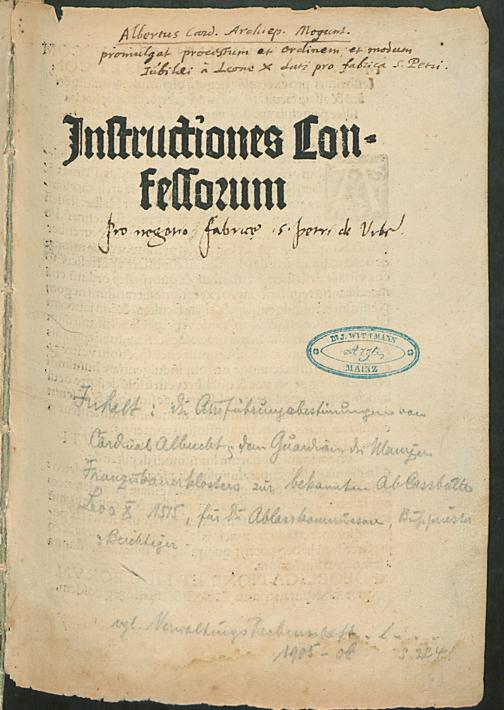 Albertus Card. Archiep. Mogunt.
promulgat processum et ordinem et modum
Iubilaei à Leone X dati pro fabrica S. Petri.
Instructiones Con-
fessorum
pro negotio fabrice s. petri de Urbe
Dr. J. WITTMANN
MAINZ
Inhalt: die Ausführungsbestimmungen von
Cardinal Albrecht u. dem Guardian des Mainzer
Franziskanerklosters zur bekannten Ablassbulle
Leos X 1515, für die Ablasskommissare, Bußpriester
u. Beichtiger.
vgl. Verwaltungs Rechenschaft
1905-06 S. 234